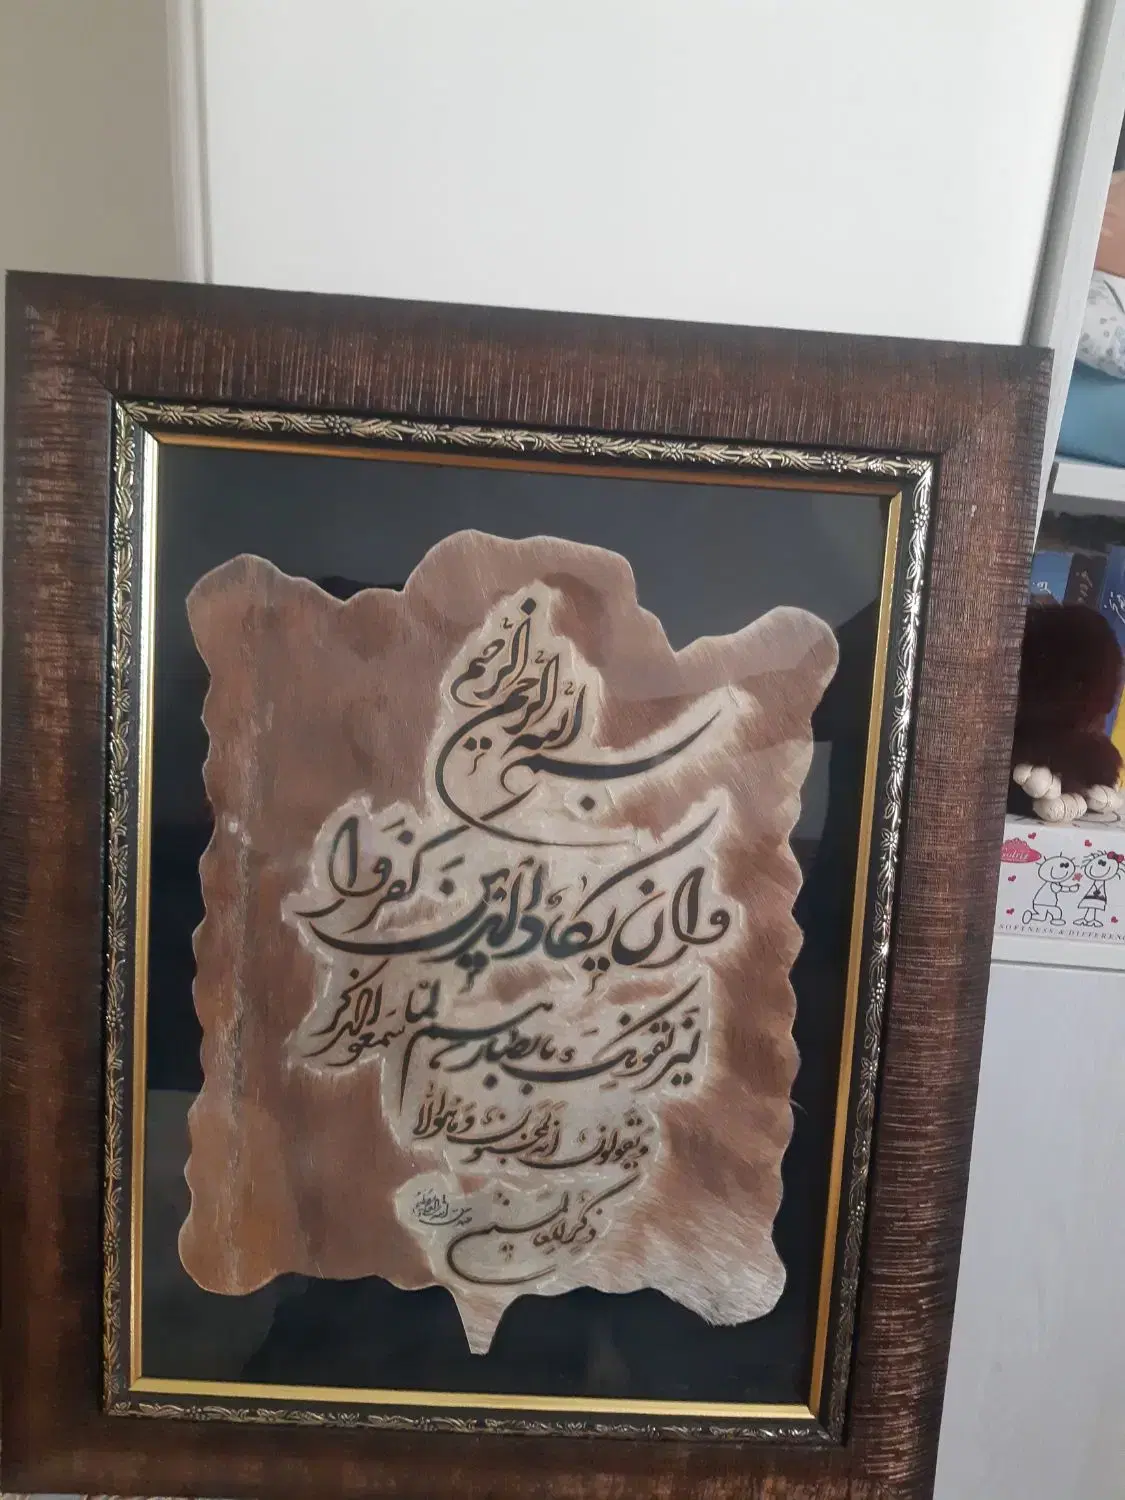 بسم الله الرحمن الرحیم
وان یکاد الذین کفروا
لیزلقونک بابصارهم لما سمعوا الذکر
و یقولون انه لمجنون و ما هو الا
ذکر للعالمین
صدق الله العلی العظیم
SOFTNESS & DIFFEREN